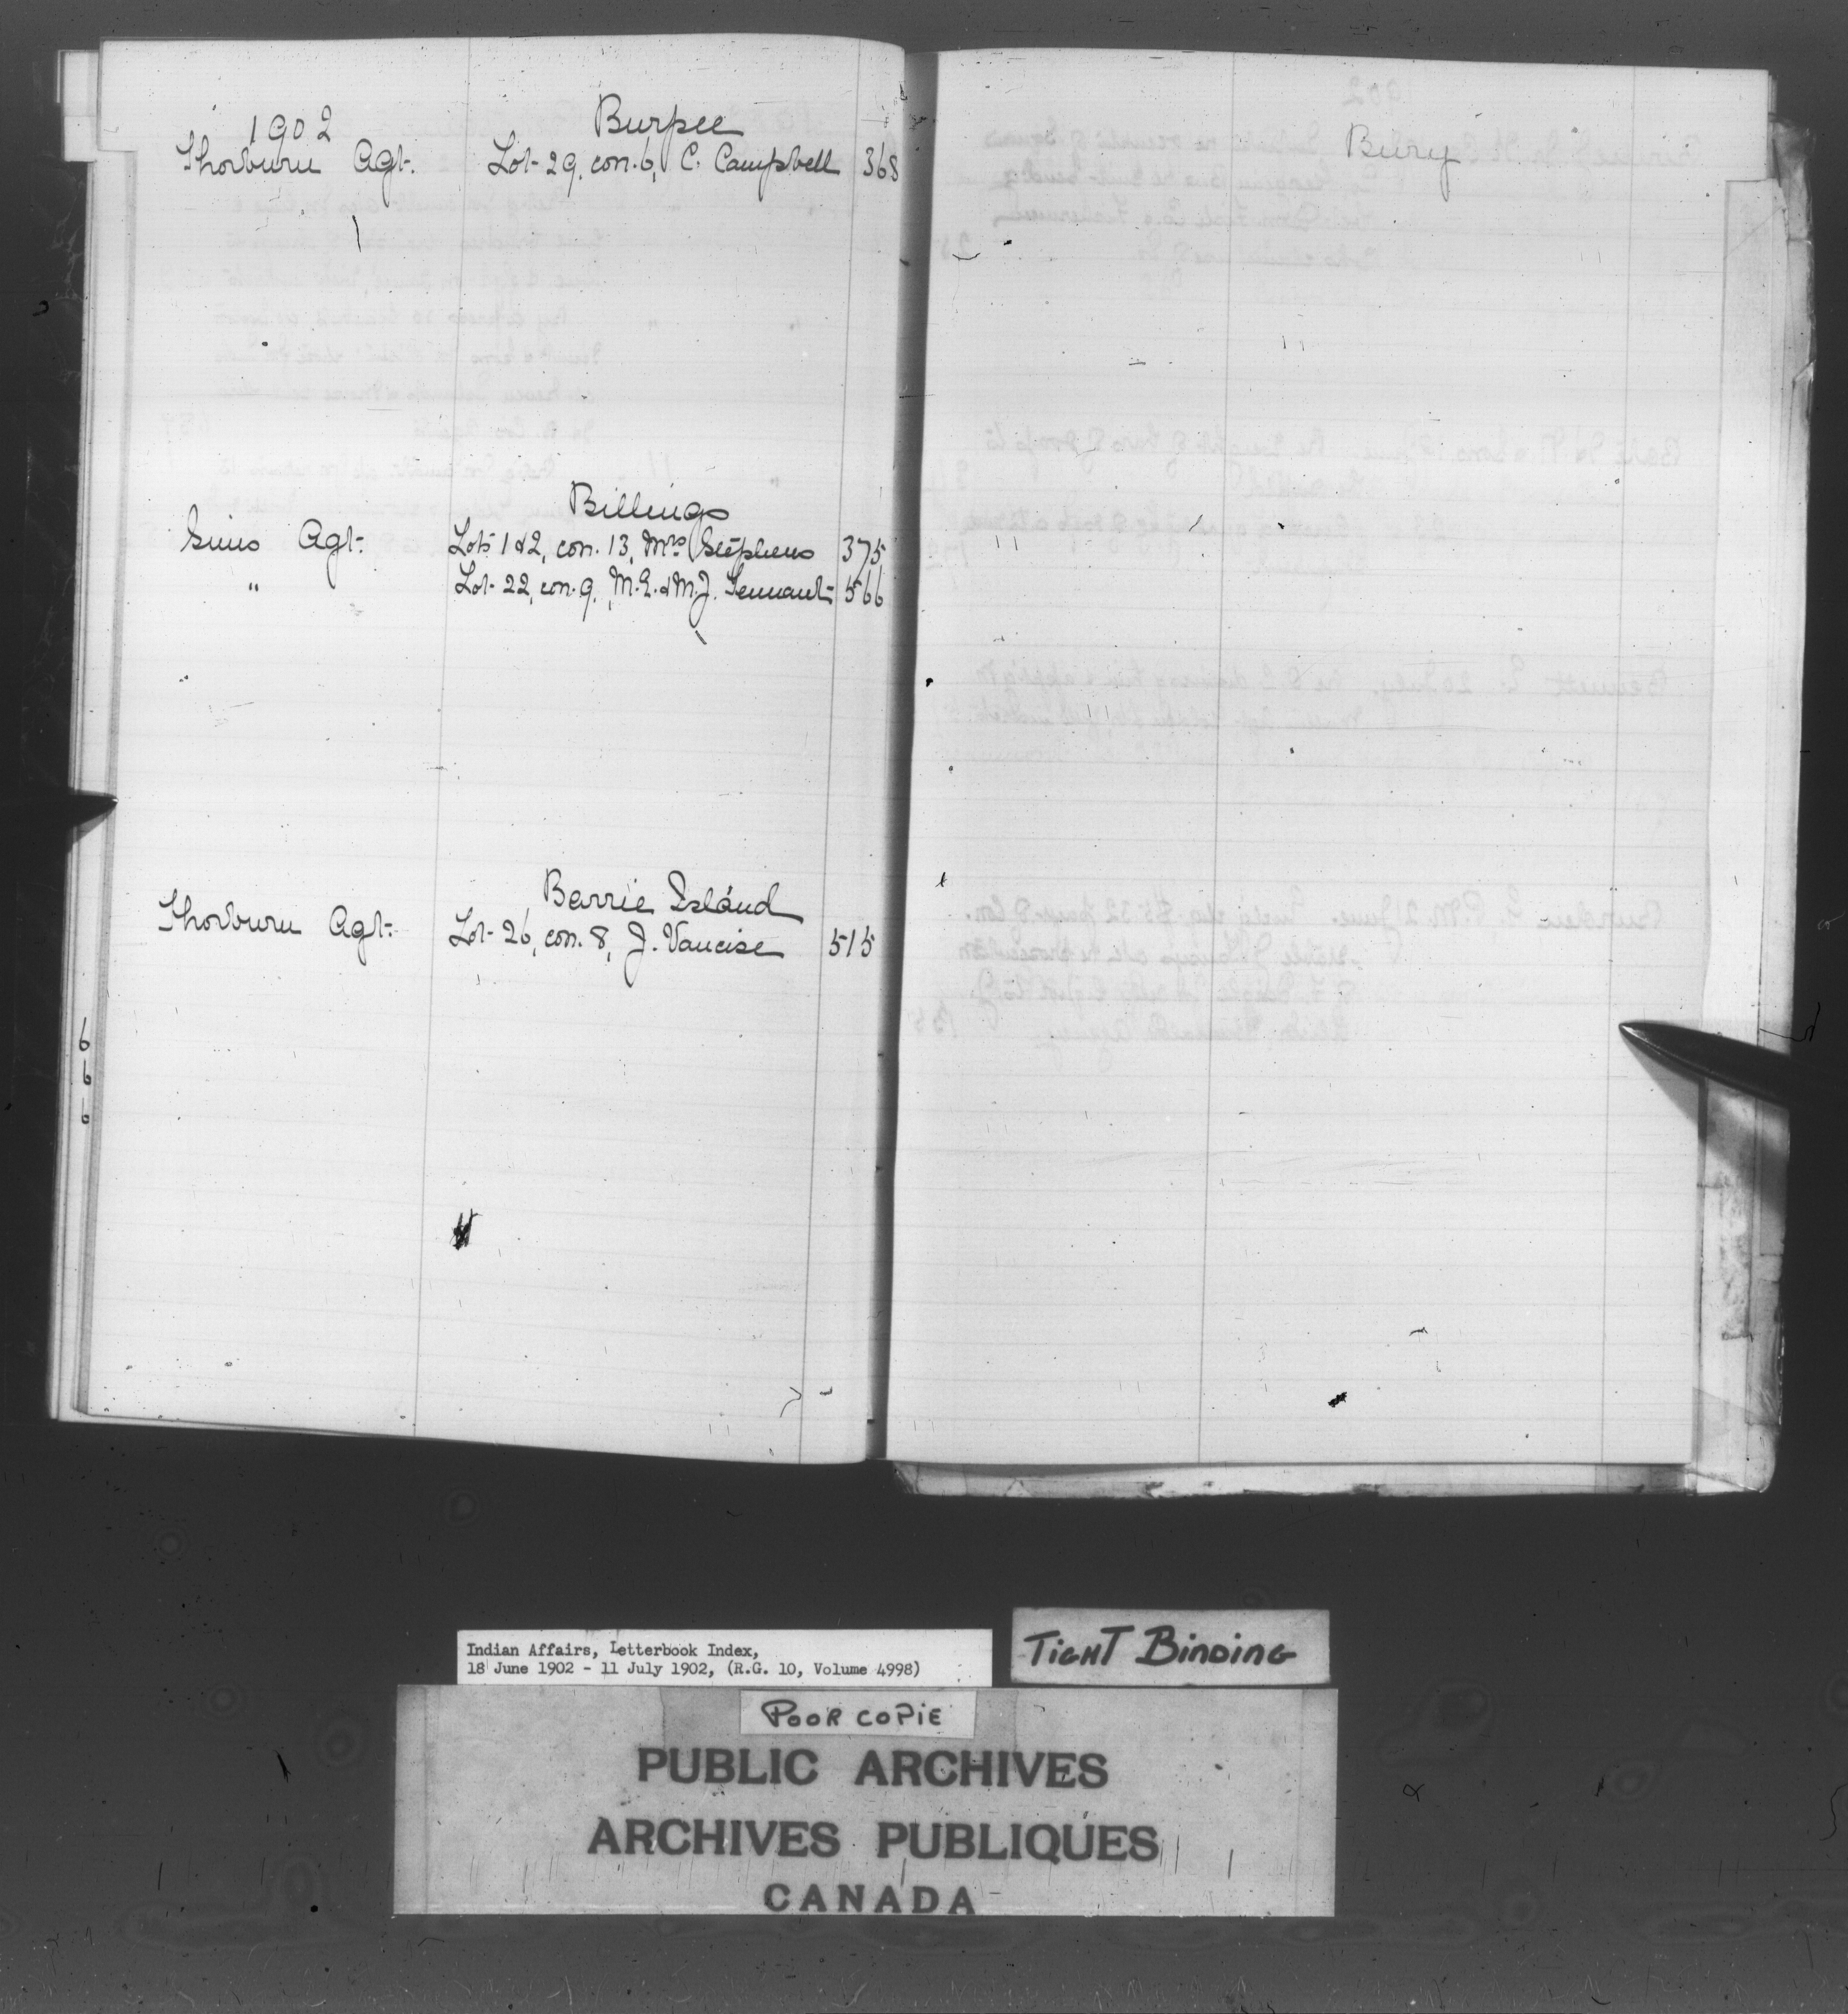 1902
Burpee
Thorburn Agt. Lot 29, con. 6, C. Campbell 368
Billings
Sims Agt. Lots 1 & 2, con. 13, Mrs Stephens 375
" Lot 22, con. 9, M.E. & M.J. Tennant 566
Barrie Island
Thorburn Agt. Lot 26, con. 8, J. Vancise 515
Bury
Indian Affairs, Letterbook Index,
18 June 1902 - 11 July 1902, (R.G. 10, Volume 4998)
TIGHT BINDING
POOR COPIE
PUBLIC ARCHIVES
ARCHIVES PUBLIQUES
CANADA